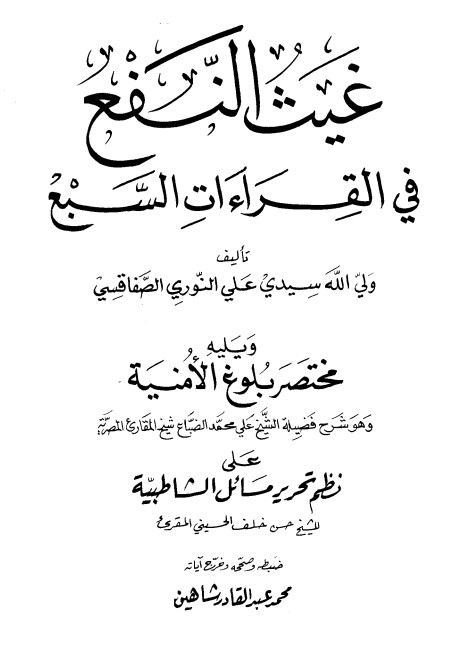 غَيْثُ النَّفْعِ
في القِرَاءَاتِ السَّبْعِ
تأليف
وَليّ اللَّه سِيدي عَلي النّوري الصَّفاقسِيّ
وَيَليهِ
مختصَر بُلوُغ الأُمنيَة
وَهوَ شَرح فَضِيلة الشَّيخ عَلي محمَّد الضبّاع شيخ المقارئ المصريَّة
عَلى
نظم تحرير مسَائل الشاطبيّة
للشيخ حسن خلف الحسيني المقرئ
ضبطه وصحّحه وخرّج آياته
محمد عبد القادر شاهين